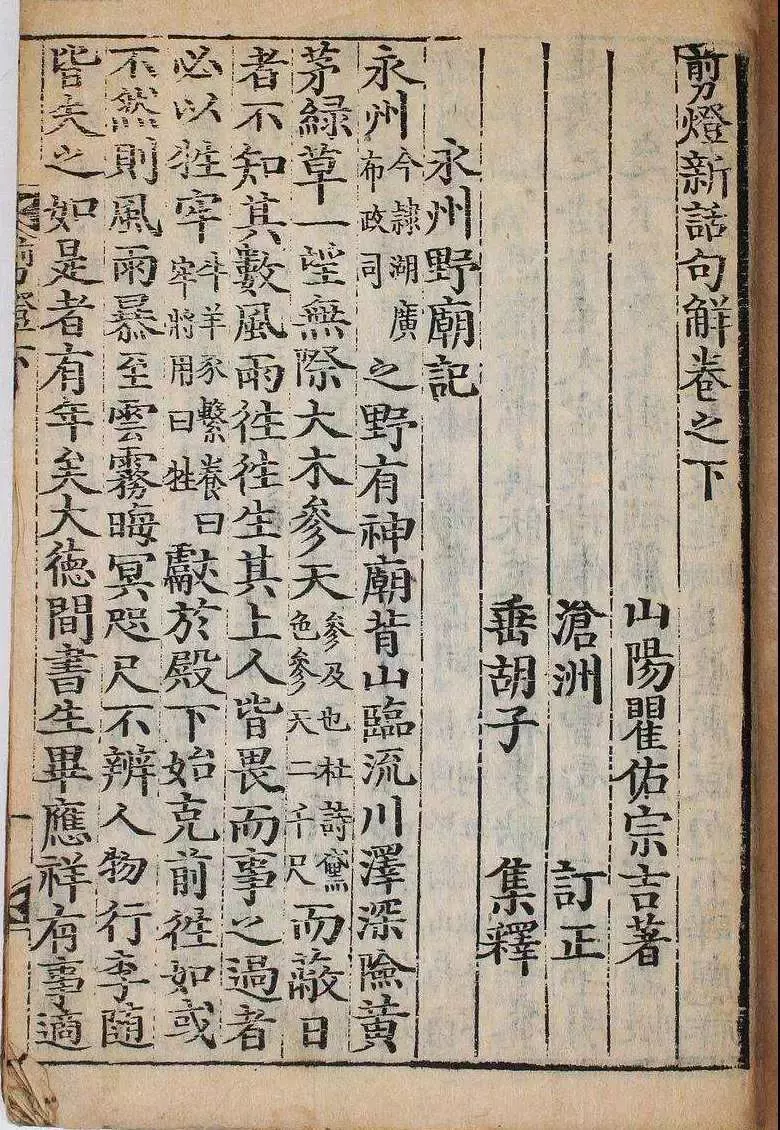 剪燈新話句解卷之下
山陽瞿佑宗吉著
滄洲 訂正
垂胡子 集釋
永州野廟記
永州今隷湖廣布政司之野有神廟背山臨流川澤深險黄
茅綠草一望無際大木參天參及也杜詩黛色參天二千尺而蔽日
者不知其數風雨往往生其上人皆畏而事之過者
必以牲牢牛羊豕繫養曰牢將用曰牲獻於殿下始克前徃如或
不然則風雨暴至雲霧晦冥咫尺不辨人物行李隨
皆失之如是者有年矣大德間書生畢應祥有事適